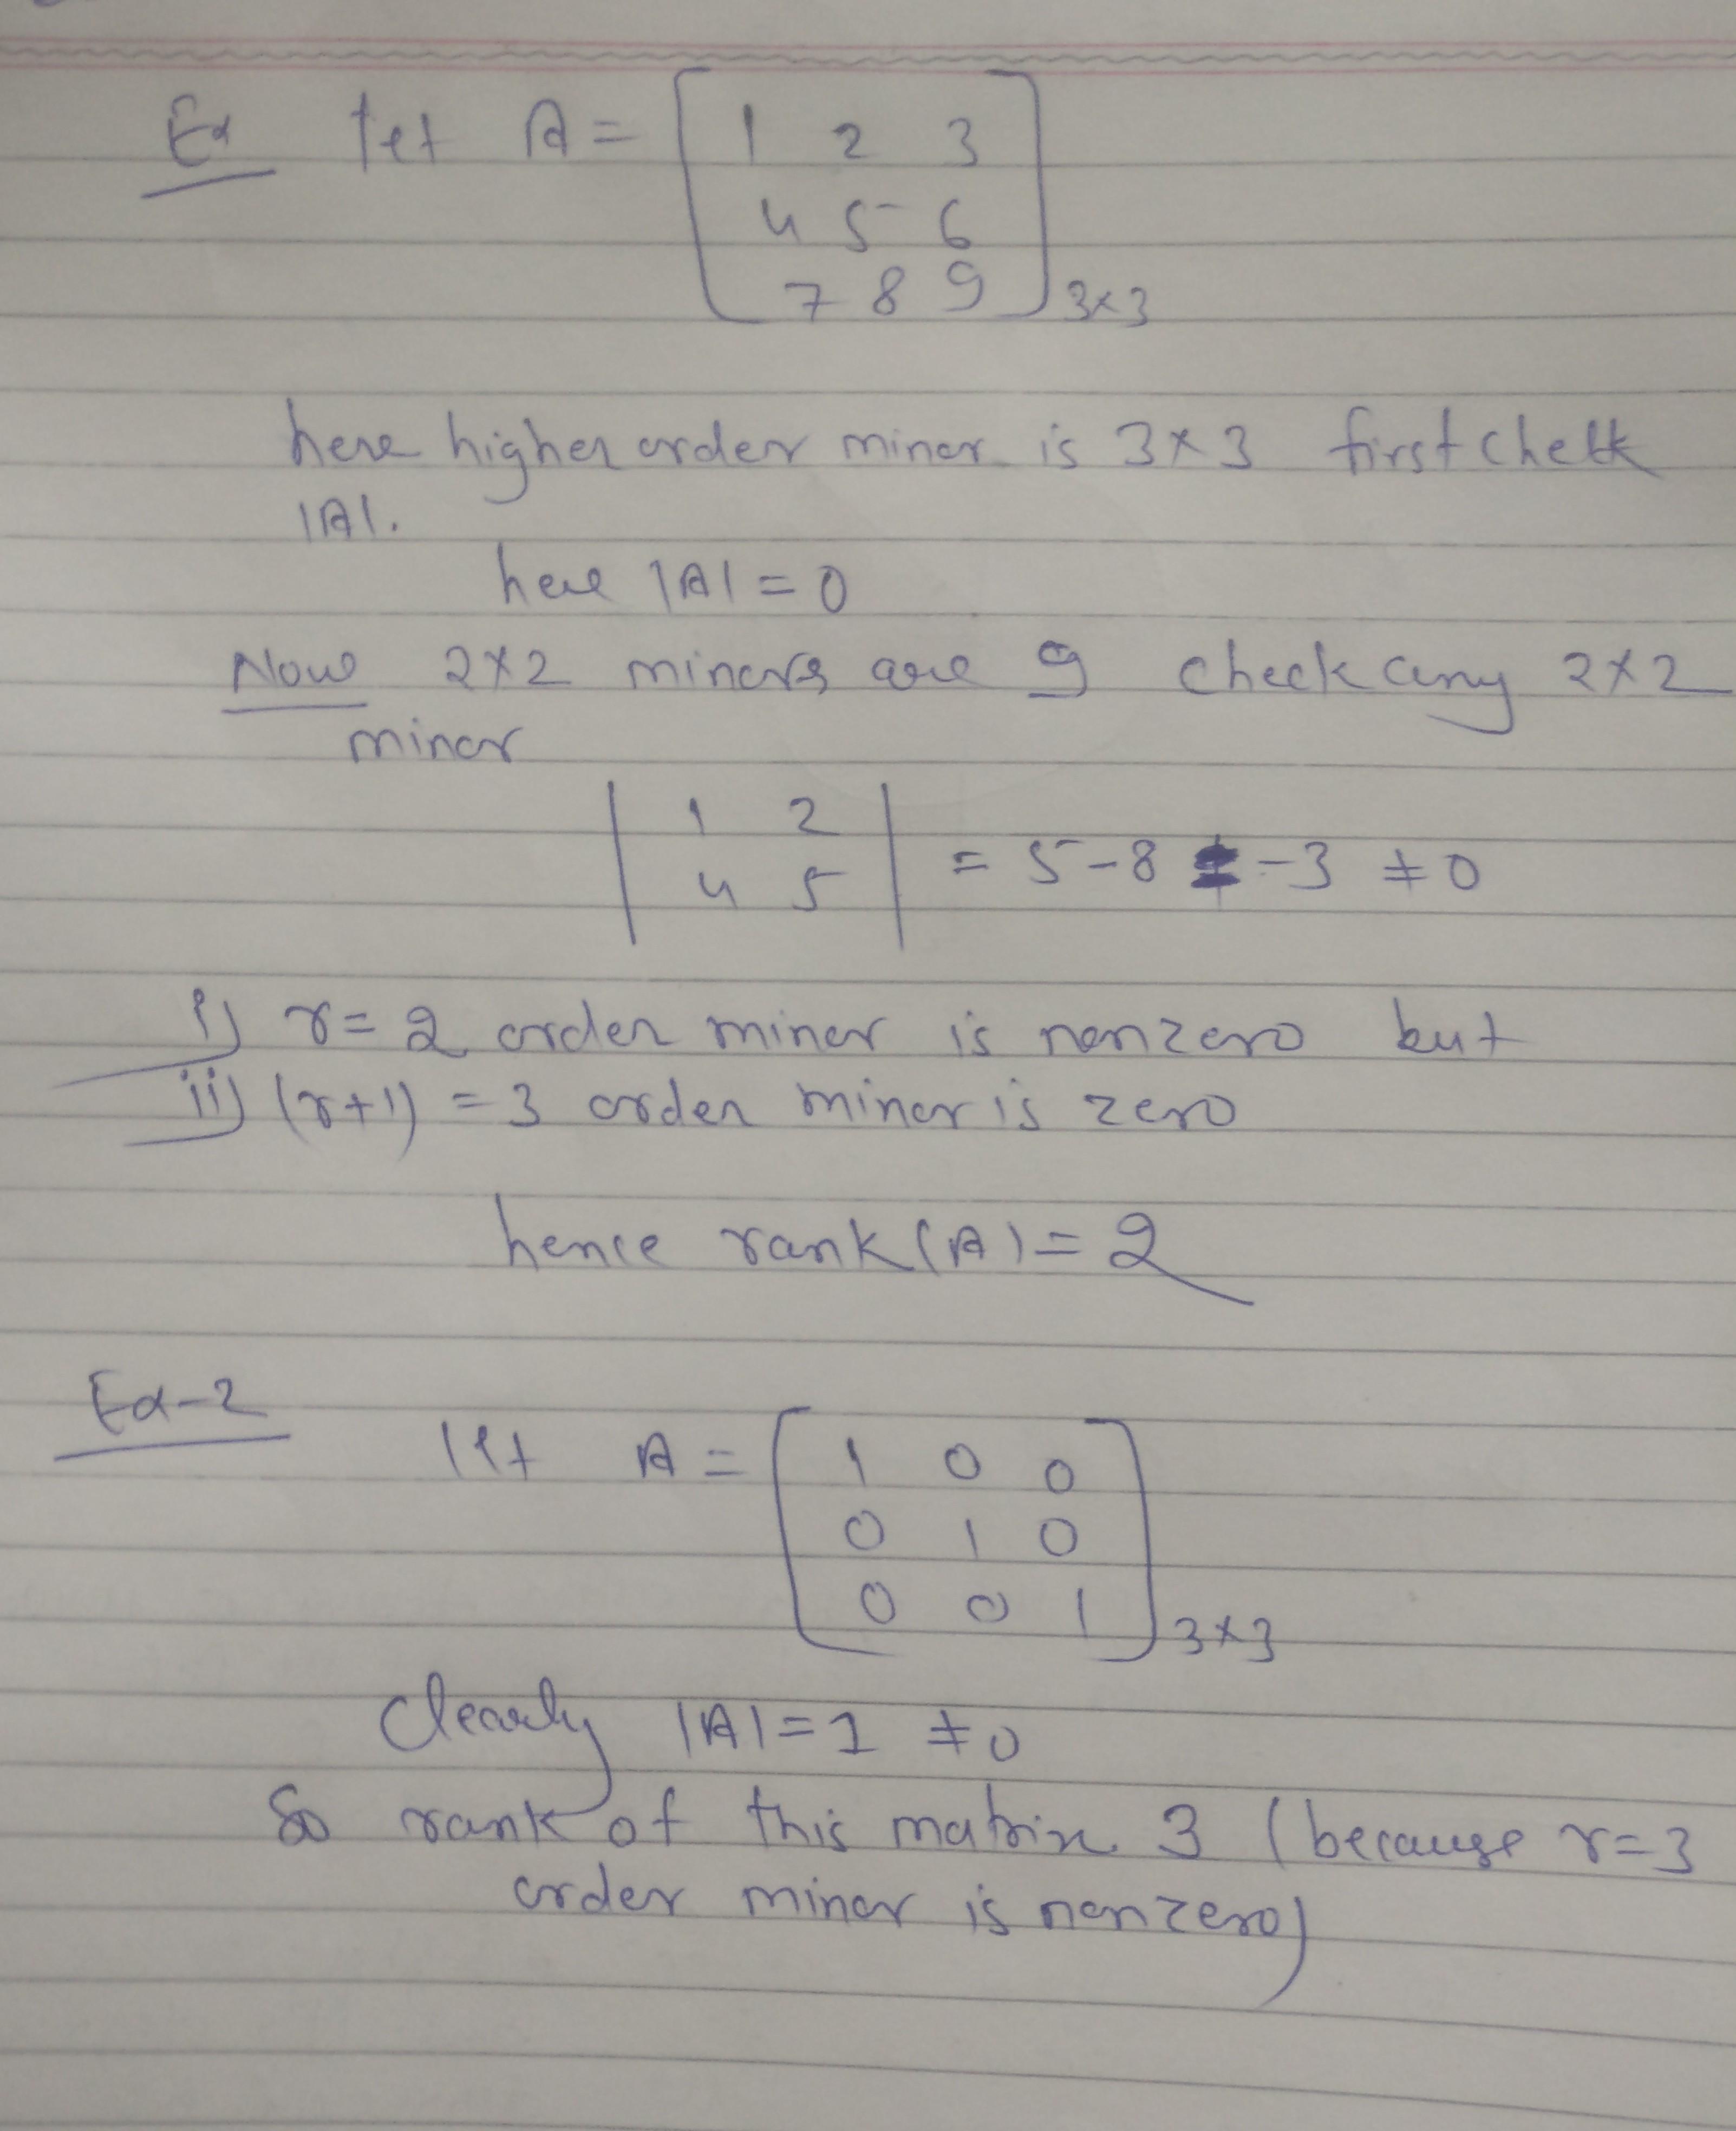 Ex let A = [ 1 2 3
4 5 6
7 8 9 ] 3×3
here higher order minor is 3×3 first check
|A|.
here |A| = 0
Now 2×2 minors are 9 check any 2×2
minor
| 1 2 |
| 4 5 | = 5-8 = -3 ≠ 0
i) r = 2 order minor is nonzero but
ii) (r+1) = 3 order minor is zero
hence rank(A) = 2
Ex-2
let A = [ 1 0 0
0 1 0
0 0 1 ] 3×3
Clearly |A| = 1 ≠ 0
So rank of this matrix 3 (because r=3
order minor is nonzero)